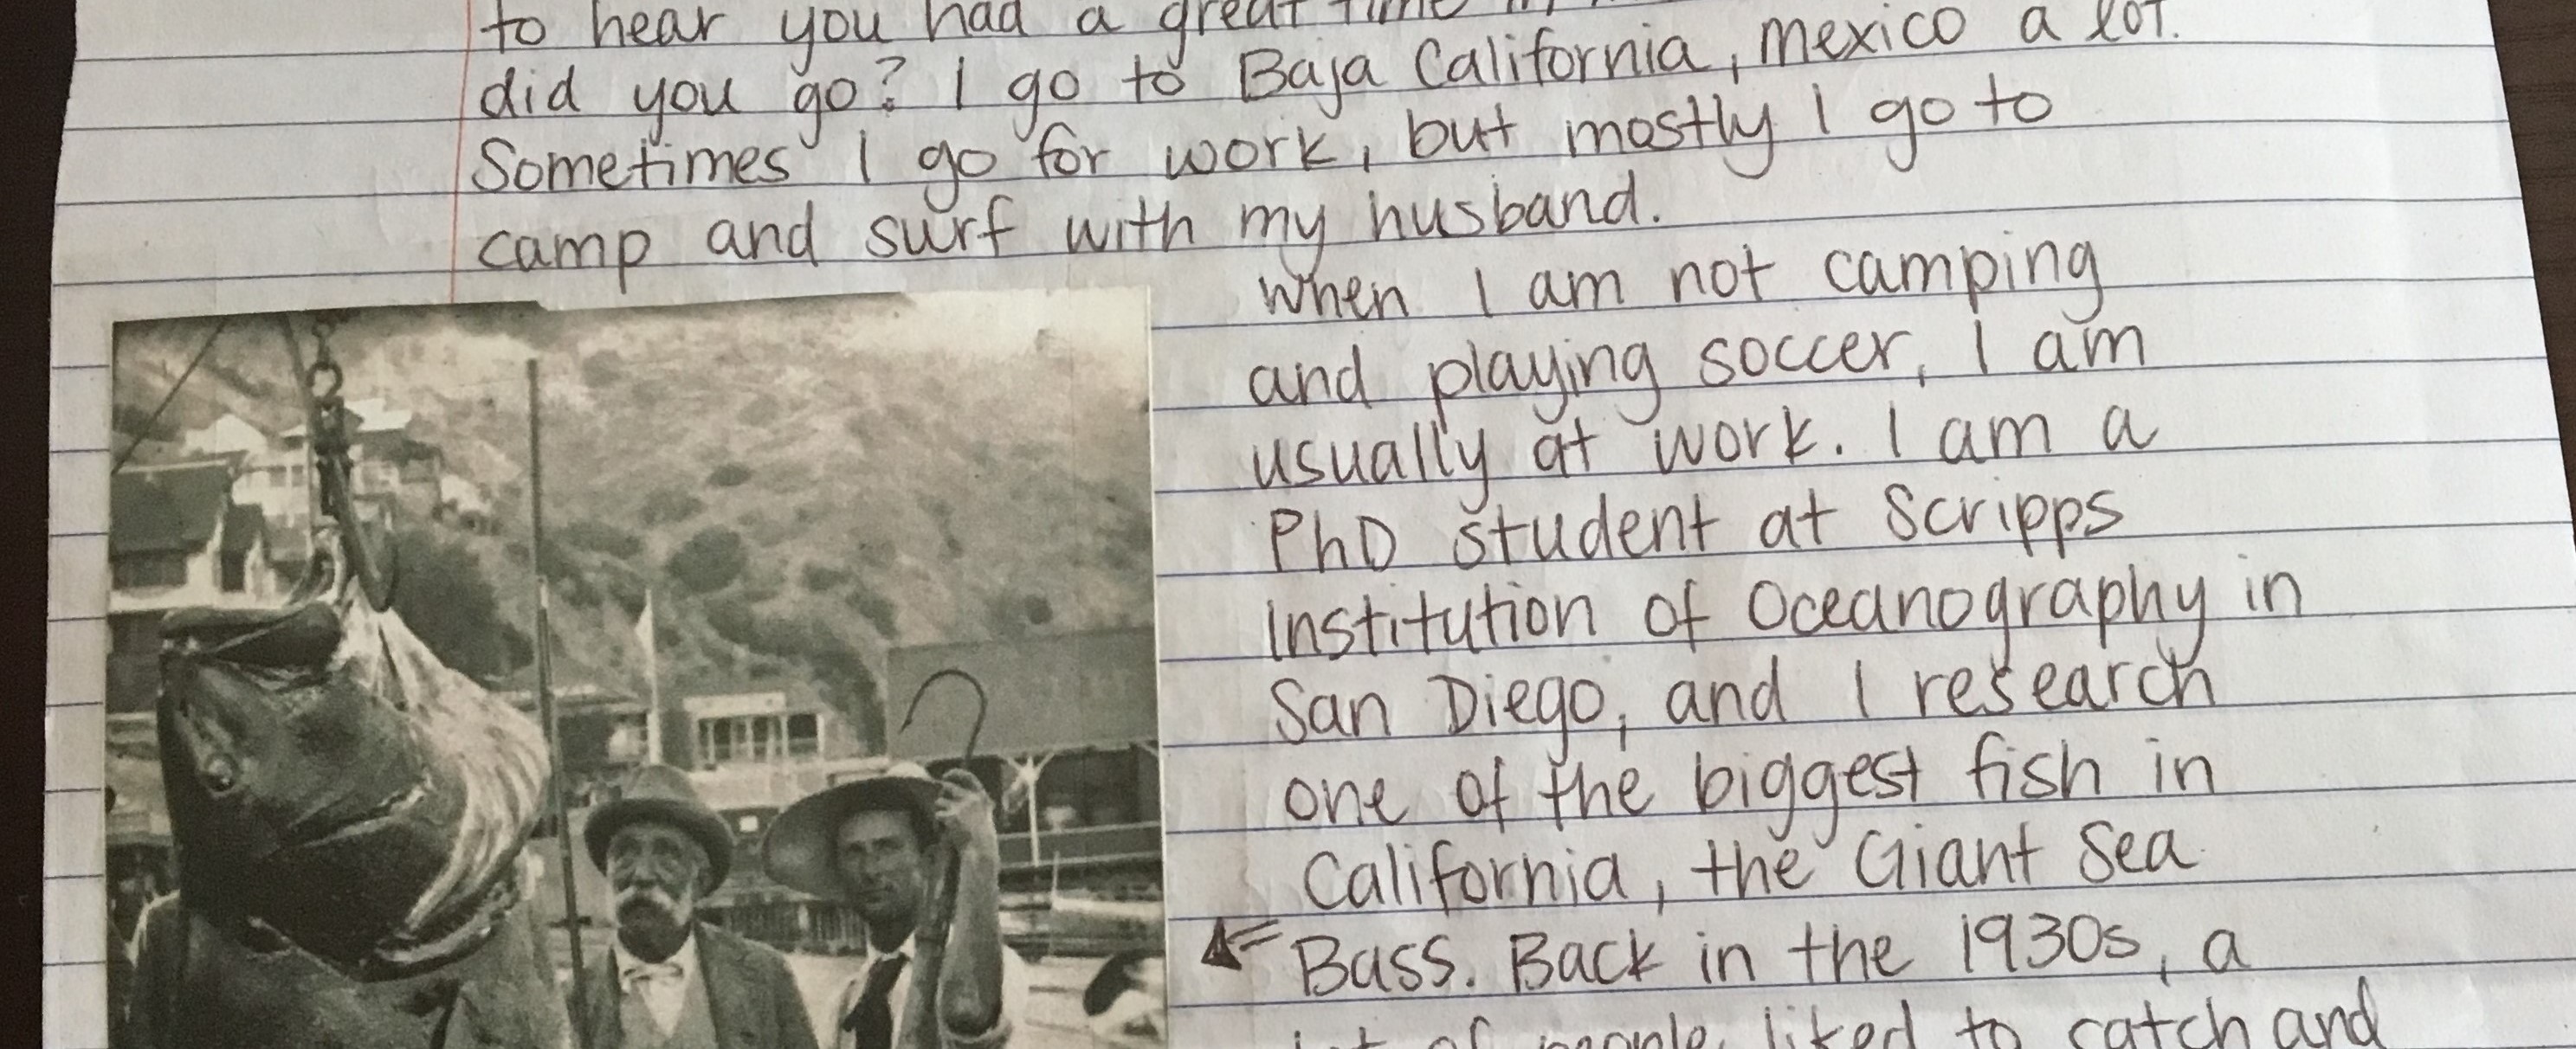 to hear you had a great time in
did you go? I go to Baja California, Mexico a lot.
Sometimes I go for work, but mostly I go to
camp and surf with my husband.
When I am not camping
and playing soccer, I am
usually at work. I am a
PhD student at Scripps
Institution of Oceanography in
San Diego, and I research
one of the biggest fish in
California, the Giant Sea
Bass. Back in the 1930s, a
lot of people liked to catch and